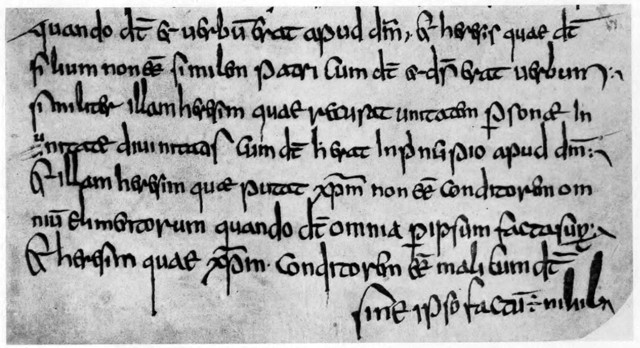 quando dt̄ & uerbū erat apud dm̄, & heresis quae dt̄
filium non eē similem patri cum dt̄ & ds̄ erat uerbum:~
similiter illam heresim quae recusat unitatem ꝑsonae in
unitate diuinitatis cum dt̄ h erat in principio apud dm̄:~
& illam heresim quae putat xp̄m non eē conditorem om
niū elimentorum quando dt̄ omnia ꝑ ipsum facta sunt:~
& heresim quae xp̄m conditorem eē mali cum dt̄
sine ipso factū: nihil